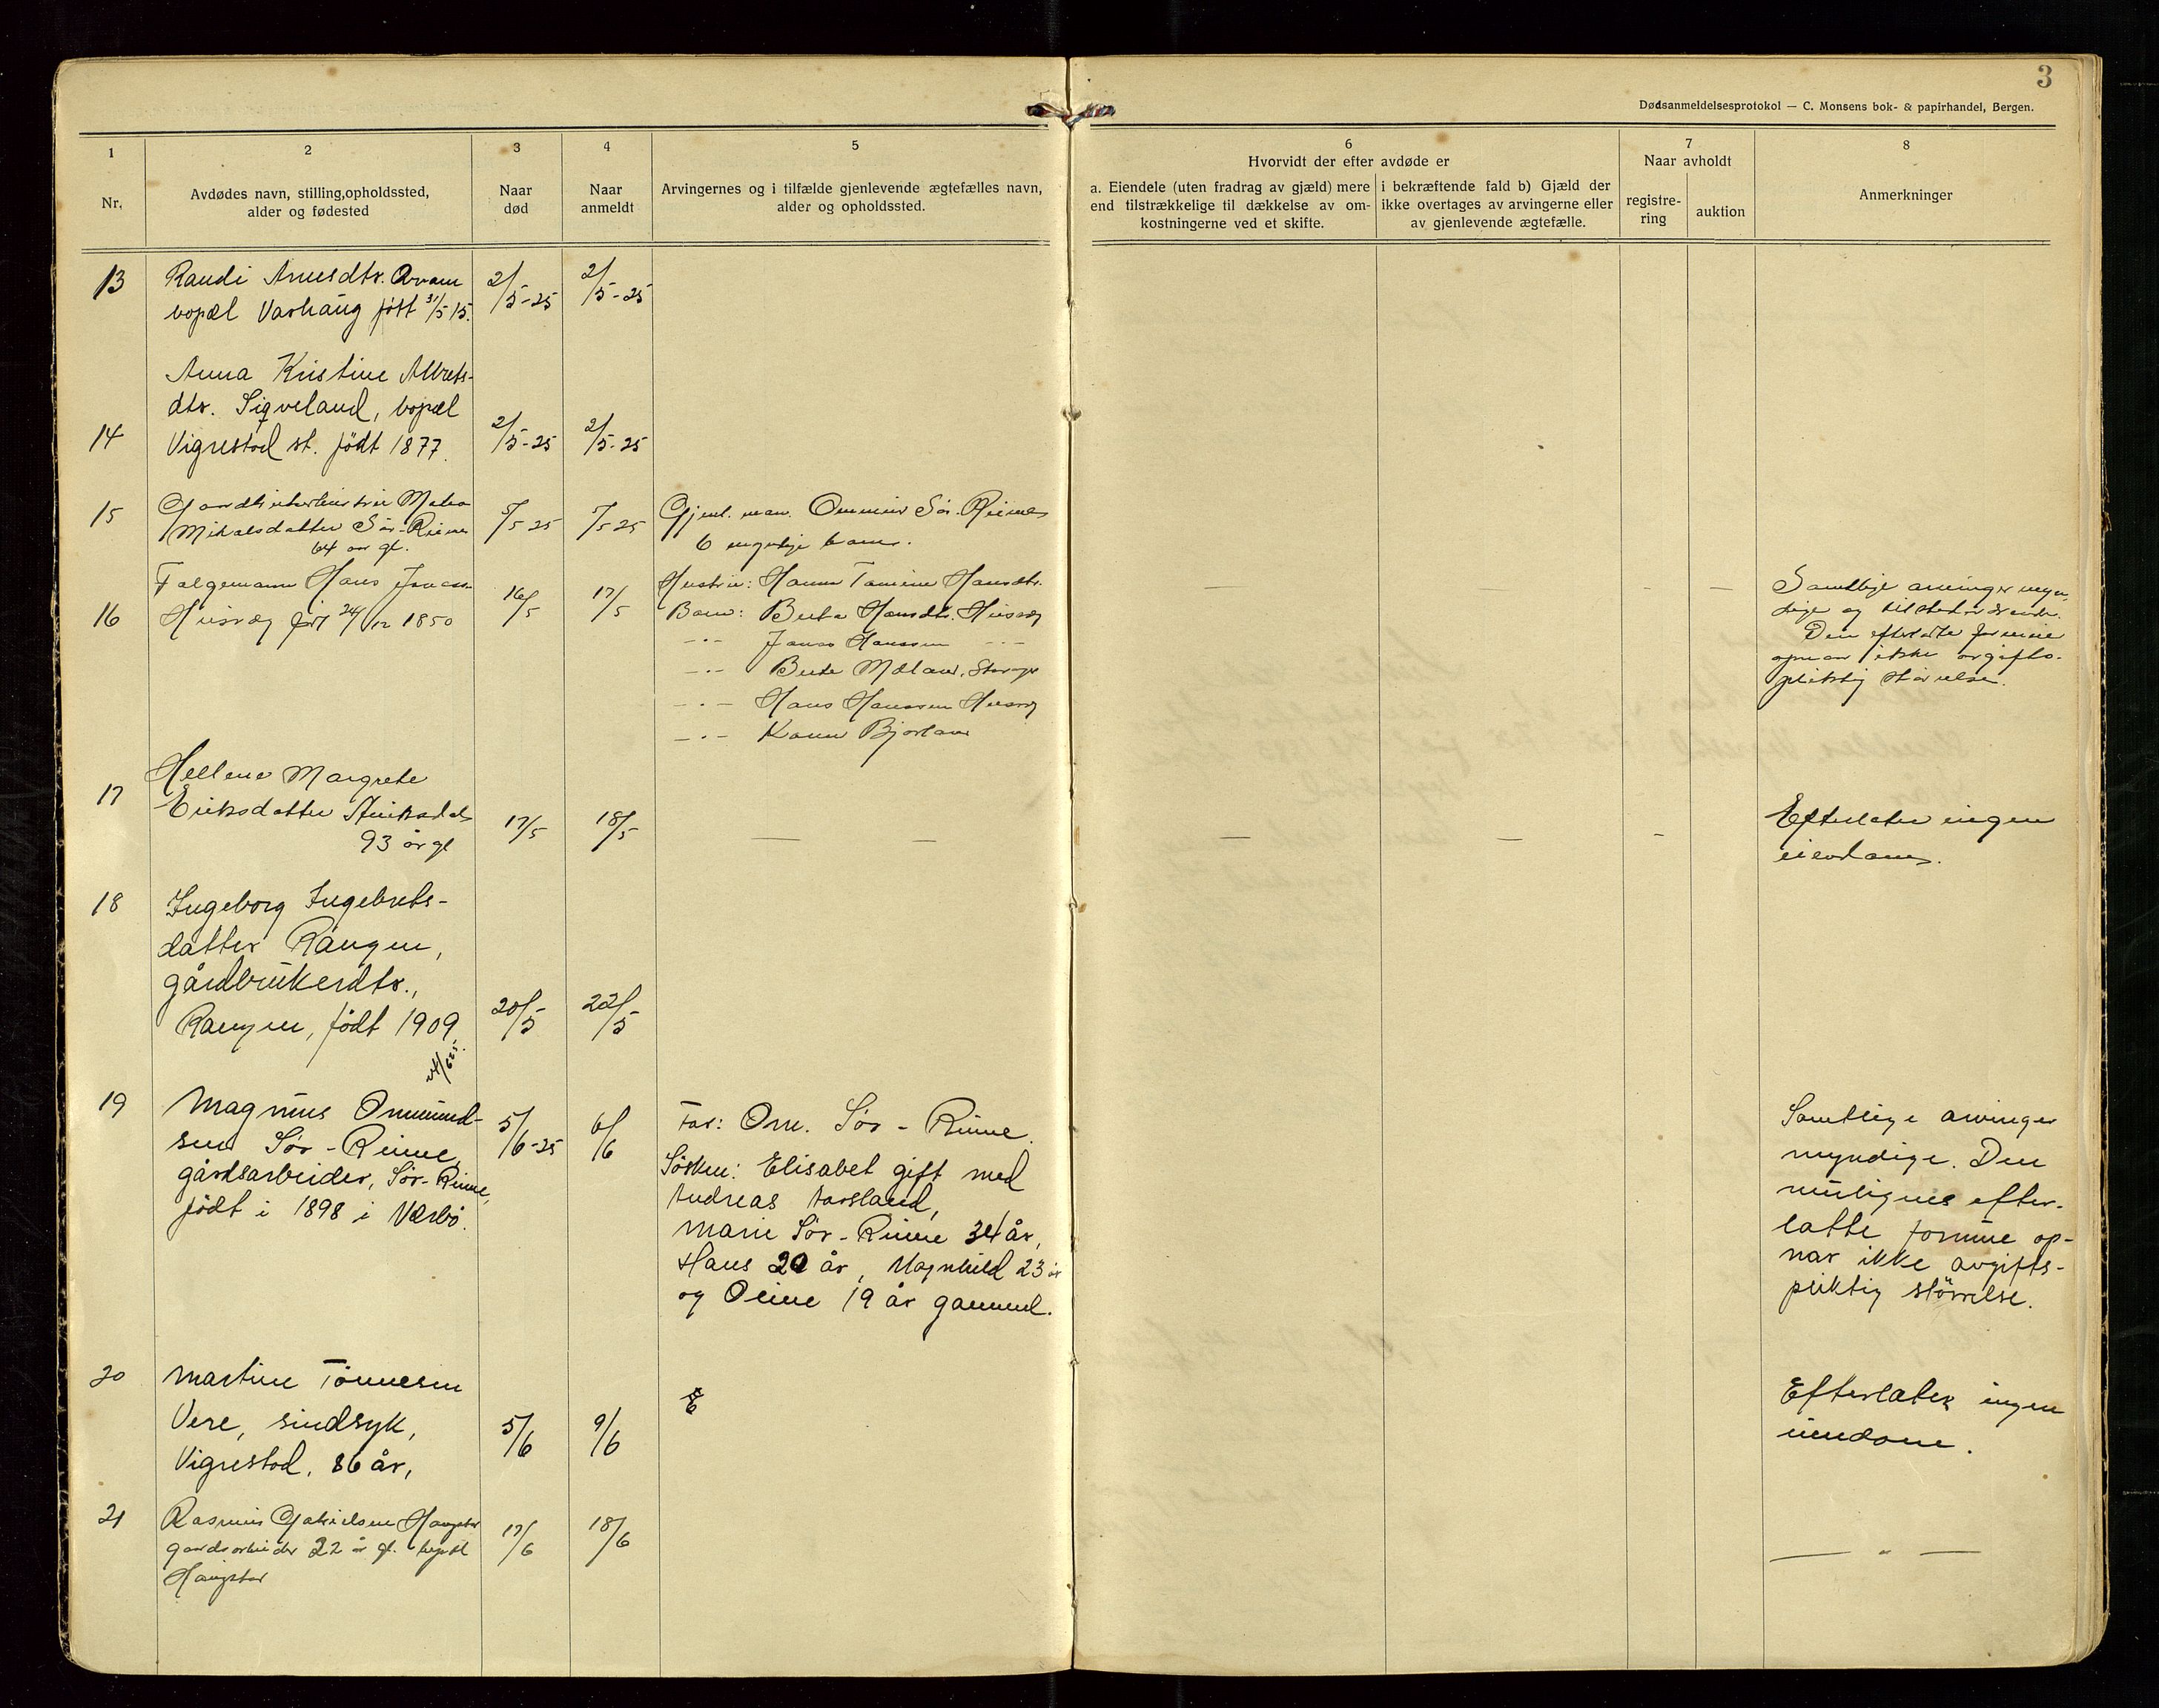 3
Dødsanmeldelsesprotokol — C. Monsens bok- & papirhandel, Bergen.
1
Nr.
2
Avdødes navn, stilling, opholdssted,
alder og fødested
3
Naar
død
4
Naar
anmeldt
5
Arvingernes og i tilfælde gjenlevende ægtefælles navn,
alder og opholdssted.
6
Hvorvidt der efter avdøde er
a. Eiendele (uten fradrag av gjæld) mere
end tilstrækkelige til dækkelse av om-
kostningerne ved et skifte.
i bekræftende fald b) Gjæld der
ikke overtages av arvingerne eller
av gjenlevende ægtefælle.
7
Naar avholdt
registre-
ring
auktion
8
Anmerkninger
13
Randi Arnesdtr. Kvam
bopæl Varhaug født 31/5 15.
2/5-25
2/5-25
14
Anna Kristine Albrets-
dtr. Sigveland, bopæl
Vigrestad st. født 1877.
2/5-25
2/5-25
15
Mikalsdatter Sør-Rime
64 aar gl.
5/5 25
7/5 25
Gjenl. man. Ommund Sør-Rime
6 myndige barn.
16
Hans Jonassen
Husvæg født 24/12 1850
16/5
17/5
Hustru: Hanna Tomine Hansdtr.
Barn: Berta Hansdtr. Husvæg
-"- Jonas Hanssen -"-
-"- Berta Mæland,
-"- Hans Hanssen Husvæg
-"- Bjorland
— — — —
Samtlige arvinger myn-
dige og tilstedeværende.
Den efterlatte formue
opnaar ikke avgifts-
pliktig størrelse.
17
Hellene Margrete
Eriksdatter
93 år gl
17/5
18/5
— —
— — -
Efterlater ingen
eiendom.
18
Ingeborg Ingebrets-
datter Raugen,
gårdbrukerdtr.,
Raugen, født 1909.
20/5
22/5
19
Magnus Ommund-
sen Sør-Rime,
gårdsarbeider, Sør-Rime,
født i 1898 i Nærbø.
5/6-25
6/6
Far: Om. Sør-Rime.
Søsken: Elisabet gift med
Andreas Aarsland,
Marie Sør-Rime 34 år,
Hans 20 år, Magnhild 23 år
og Oline 19 år gammel.
Samtlige arvinger
myndige. Den
muligens efter-
latte formue op-
når ikke avgifts-
pliktig størrelse.
20
Martine Tönnesen
Vere, sindsyk,
Vigrestad, 86 år,
5/6
9/6
Efterlater ingen
eiendom.
21
Rasmus Gabrielsen Haugstad
gaardsarbeider 22 år gl. bopæl
Haugstad
17/6
18/6
— " —